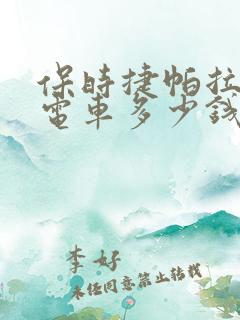 保時捷帕拉
電車多少錢
李好
未經同意禁止轉載